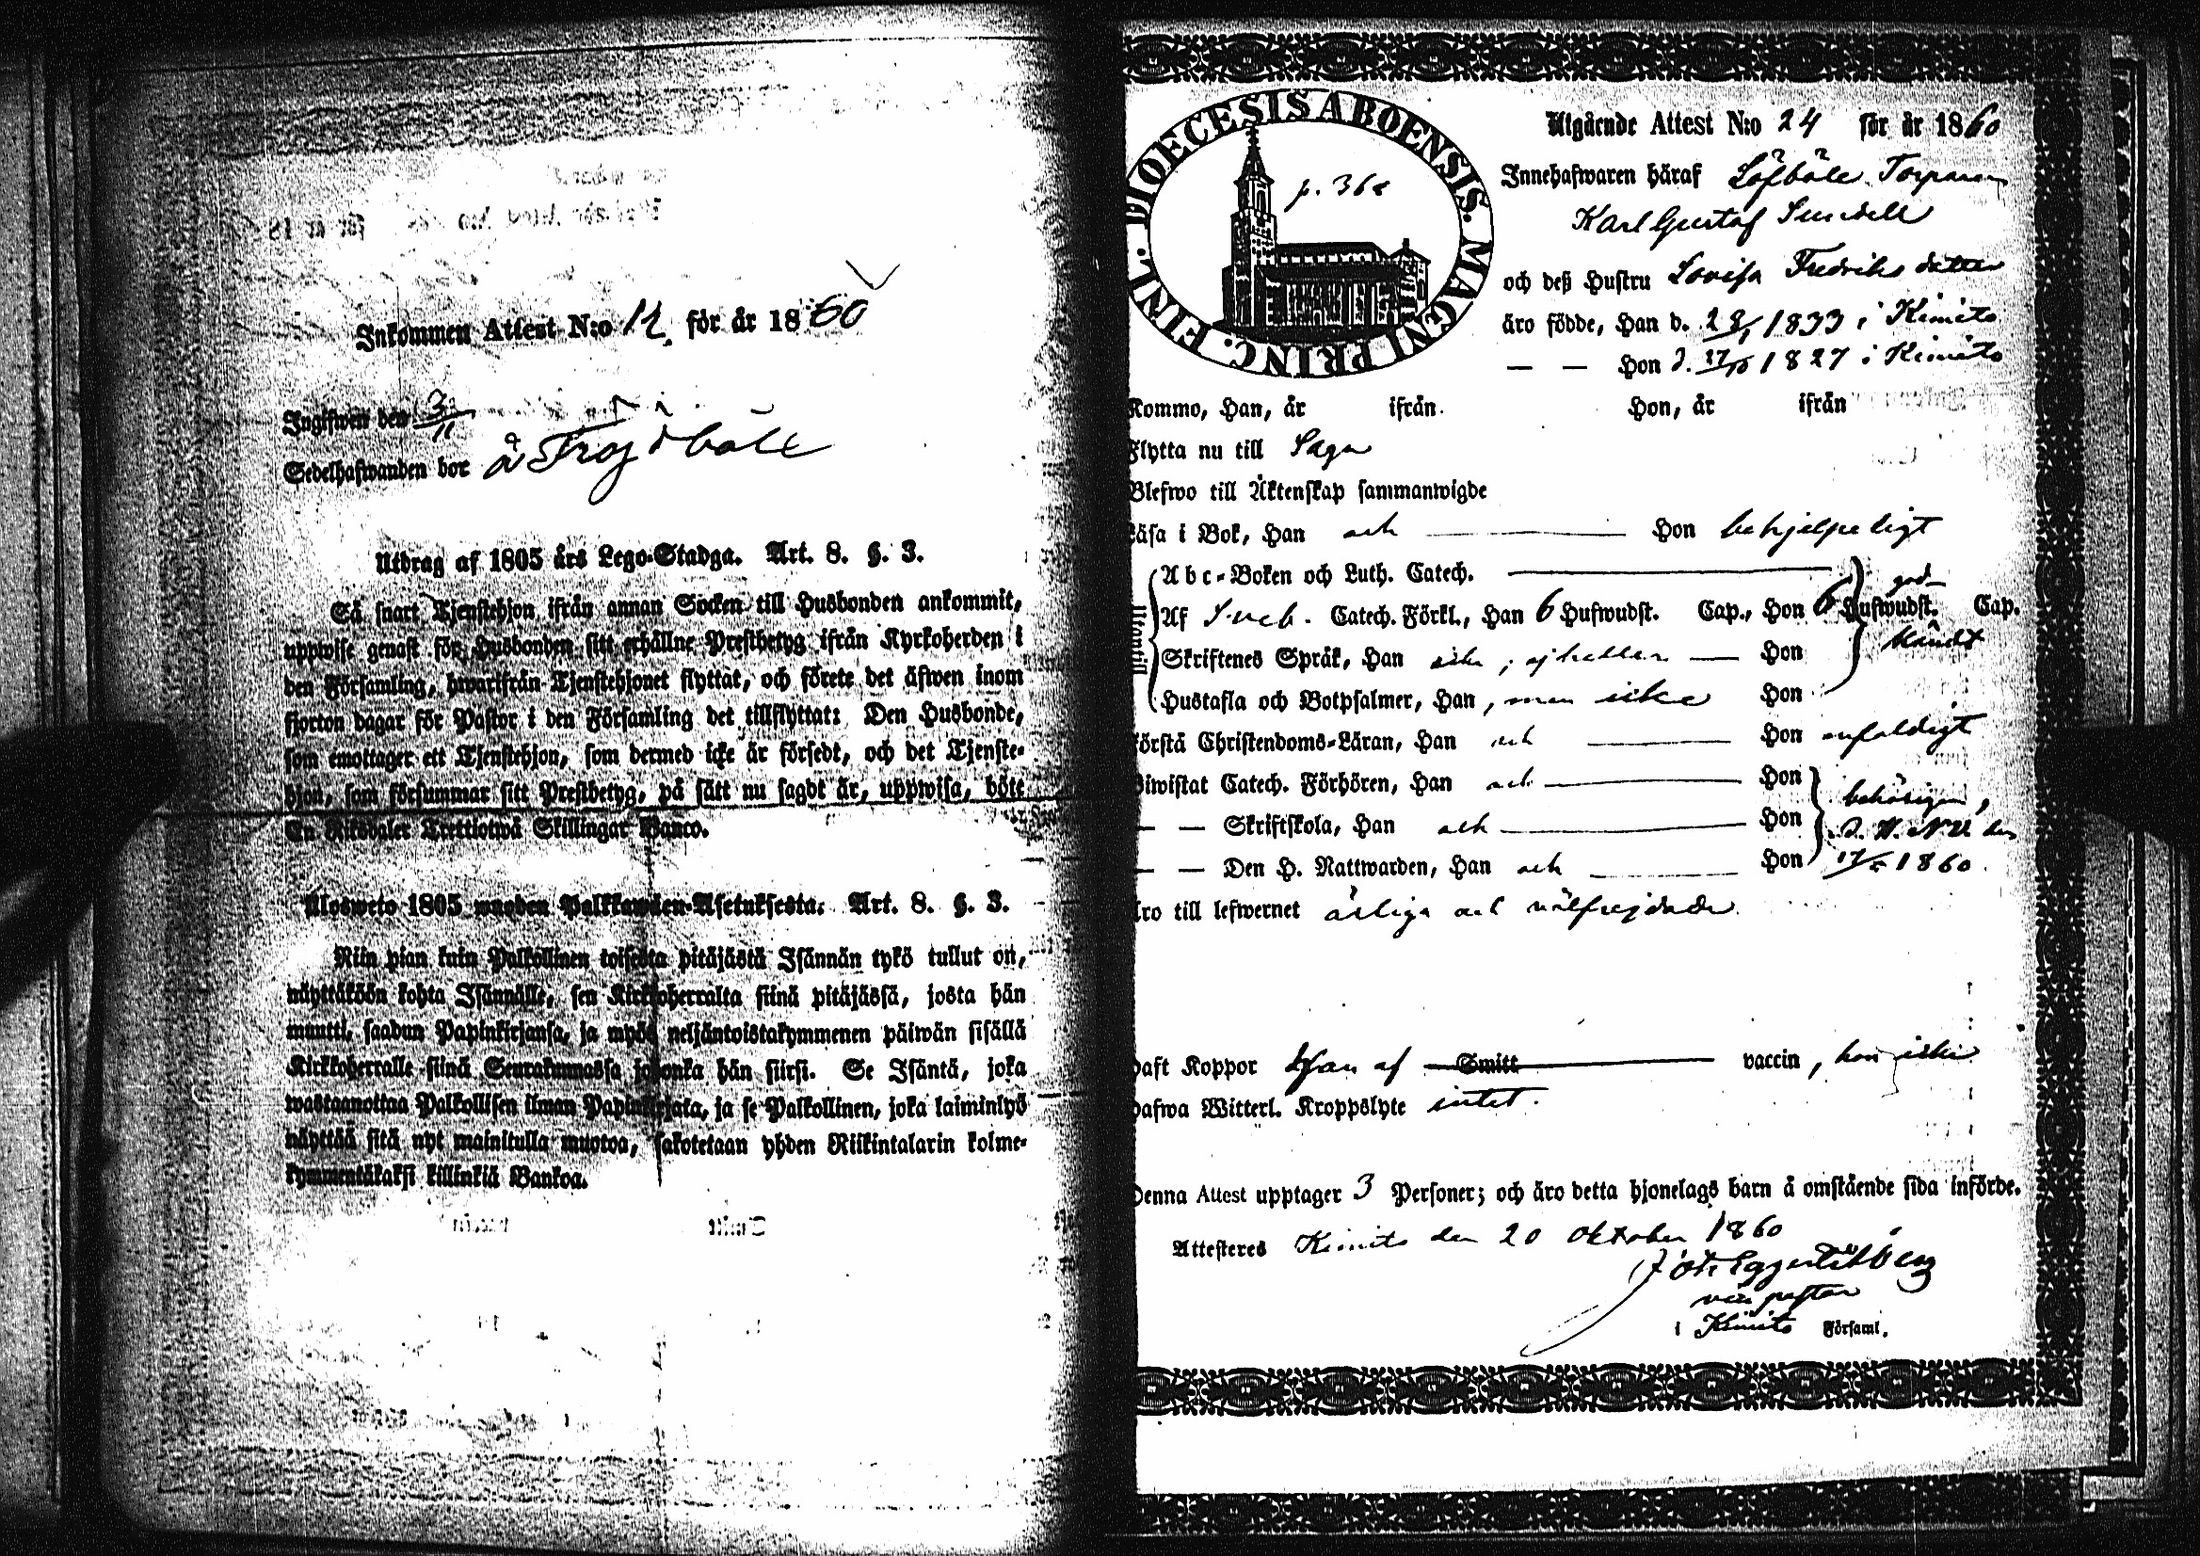 Inkommen Attest N:o 12. för år 1860
Ingifwen den 3/11
Sedelhafwanden bor å Fröjdböle
Utdrag af 1805 års Lego-Stadga. Art. 8. §. 3.
Så snart Tjenstehjon ifrån annan Socken till Husbonden ankommit,
uppwise genast för Husbonden sitt erhållne Prestbetyg ifrån Kyrkoherden i
den Församling, hwarifrån Tjenstehjonet flyttat, och förete det äfwen inom
fjorton dagar för Pastor i den Församling det tillflyttat: Den Husbonde,
som emottager ett Tjenstehjon, som dermed icke är försedt, och det Tjenste-
hjon, som försummar sitt Prestbetyg, på sätt nu sagdt är, uppwisa, böte
En Riksdaler Trettiotwå Skillingar Banco.
Ulosweto 1805 wuoden Palkkawäen-Asetuksesta. Art. 8. §. 3.
Niin pian kuin Palkollinen toisesta pitäjästä Isännän tykö tullut on,
näyttäköön kohta Isännälle, sen Kirkkoherralta siinä pitäjässä, josta hän
muutti, saadun Papinkirjansa, ja myös neljäntoistakymmenen päiwän sisällä
Kirkkoherralle siinä Seurakunnassa johonka hän siirsi. Se Isäntä, joka
wastaanottaa Palkollisen ilman Papinkirjata, ja se Palkollinen, joka laiminlyö
näyttää sitä nyt mainitulla muotoa, sakotetaan yhden Riikintalarin kolme-
kymmentäkaksi killinkiä Bankoa.
DIOECESIS ABOENSIS. MAGNI PRINC. FINL.
p. 368
Utgående Attest N:o 24 för år 1860
Innehafwaren häraf Löfböle Torparen
Karl Gustaf Sundell
och deß Hustru Lovisa Fredriksdotter
äro födde, Han d. 28/1 1833 i Kimito
— — Hon d. 17/10 1827 i Kimito
Kommo, Han, år ifrån Hon, år ifrån
Flytta nu till Sagu
Blefwo till Äktenskap sammanwigde
Läsa i Bok, Han och — Hon behjelpeligt
Utantill
Abc-Boken och Luth. Catech. —
Af Sveb. Catech. Förkl., Han 6 Hufwudst. Cap., Hon 6 Hufwudst. Cap.
Skriftenes Språk, Han icke, ej heller — Hon
Hustafla och Botpsalmer, Han, men icke Hon
Förstå Christendoms-Läran, Han och — Hon enfaldigt
Biwistat Catech. Förhören, Han och — Hon
— — Skriftskola, Han och — Hon
— — Den H. Nattwarden, Han och — Hon
behörigen,
d. H. N. V. den
1860.
Äro till lefwernet ärliga och välfrejdade
Haft Koppor Han af Smitt vaccin, hon icke
Hafwa Witterl. Kroppslyte intet.
Denna Attest upptager 3 Personer; och äro detta hjonelags barn å omstående sida införde.
Attesteres Kimito den 20 Oktober 1860
vice pastor
i Kimito Församl.